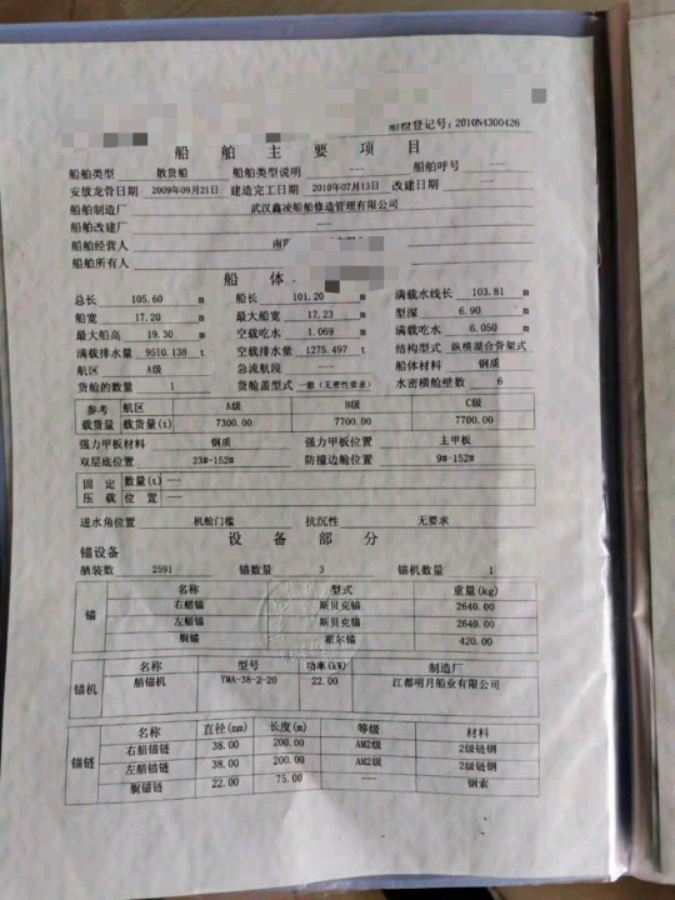 船检登记号：2010N4300426
船 舶 主 要 项 目
船舶类型 散货船 船舶类型说明 --- 船舶呼号 ---
安放龙骨日期 2009年09月21日 建造完工日期 2010年07月13日 改建日期 ---
船舶制造厂 武汉鑫凌船舶修造管理有限公司
船舶改建厂 ---
船舶经营人 南
船舶所有人
船 体
总长 105.60 m 船长 101.20 m 满载水线长 103.81 m
船宽 17.20 m 最大船宽 17.23 m 型深 6.90 m
最大船高 19.30 m 空载吃水 1.069 m 满载吃水 6.050 m
满载排水量 9510.138 t 空载排水量 1275.497 t 结构型式 纵横混合骨架式
航区 A级 急流航段 --- 船体材料 钢质
货舱的数量 1 货舱盖型式 一般（无密性要求） 水密横舱壁数 6
参考 航区 A级 B级 C级
载货量 载货量(t) 7300.00 7700.00 7700.00
强力甲板材料 钢质 强力甲板位置 主甲板
双层底位置 23#-152# 防撞边舱位置 9#-152#
固 定 数量(t) ---
压 载 位 置 ---
进水角位置 机舱门槛 抗沉性 无要求
设 备 部 分
锚设备
舾装数 2591 锚数量 3 锚机数量 1
名称 型式 重量(kg)
锚 右艏锚 斯贝克锚 2640.00
左艏锚 斯贝克锚 2640.00
艉锚 霍尔锚 420.00
名称 型号 功率(kW) 制造厂
锚机 艏锚机 YMA-38-2-20 22.00 江都明月船业有限公司
名称 直径(mm) 长度(m) 等级 材料
锚链 右艏锚链 38.00 200.00 AM2级 2级链钢
左艏锚链 38.00 200.00 AM2级 2级链钢
艉锚链 22.00 75.00 --- 钢索